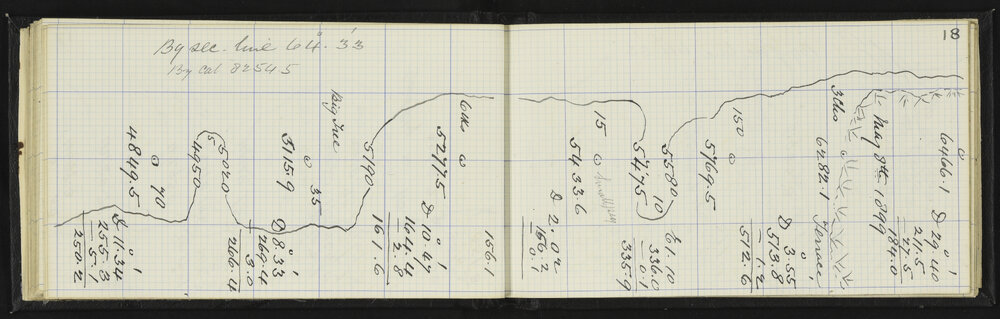 18
By sec. line 64° 33'
By Cal 82545
4849.5
⊙ 70
D 11°.34'
255.3
5.1
250.2
4950
5
5020
5115.9
⊙ 35
D 8°.33'
269.4
3.0
266.4
Big Tree
5190
161.6
6 lks
5277.5
⊙
D 10°.47'
164.4
2.8
156.1
15
5433.6
⊙
D 2°.02'
156.2
0.1
5475
10
5580
E 1°.10'
336.0
0.1
335.9
150
5769.5
⊙
D 3°.55'
513.8
1.2
512.6
3 lks
6282.1
Terrace
May 8th 1899
6466.1
⊙
D 29°.40'
211.5
27.5
184.0